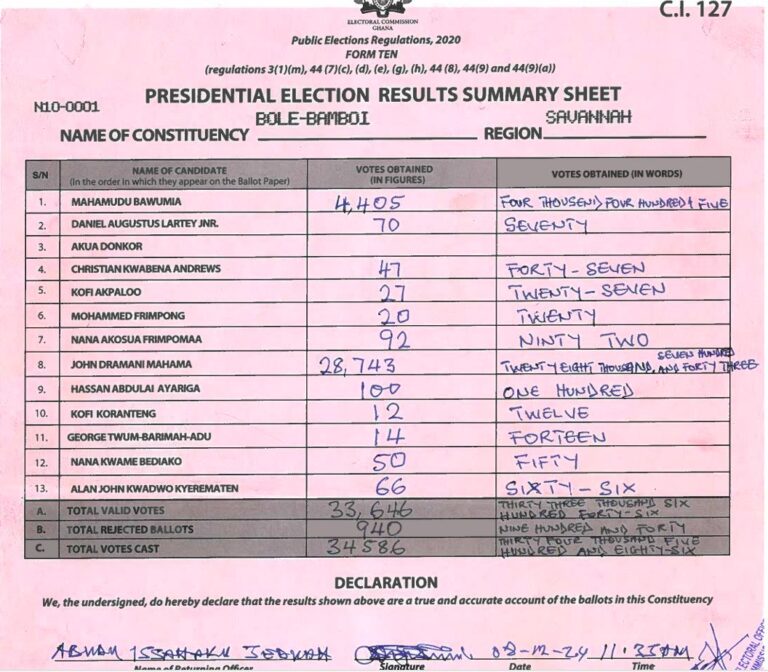 C.I. 127
ELECTORAL COMMISSION
GHANA
Public Elections Regulations, 2020
FORM TEN
(regulations 3(1)(m), 44 (7)(c), (d), (e), (g), (h), 44 (8), 44(9) and 44(9)(a))
N10-0001
PRESIDENTIAL ELECTION RESULTS SUMMARY SHEET
NAME OF CONSTITUENCY BOLE-BAMBOI REGION SAVANNAH
S/N NAME OF CANDIDATE (In the order in which they appear on the Ballot Paper) VOTES OBTAINED (IN FIGURES) VOTES OBTAINED (IN WORDS)
1. MAHAMUDU BAWUMIA 4,405 FOUR THOUSEND, FOUR HUNDRED & FIVE
2. DANIEL AUGUSTUS LARTEY JNR. 70 SEVENTY
3. AKUA DONKOR
4. CHRISTIAN KWABENA ANDREWS 47 FORTY-SEVEN
5. KOFI AKPALOO 27 TWENTY-SEVEN
6. MOHAMMED FRIMPONG 20 TWENTY
7. NANA AKOSUA FRIMPOMAA 92 NINTY TWO
8. JOHN DRAMANI MAHAMA 28,743 TWENTY EIGHT THOUSAND, SEVEN HUNDRED AND FORTY THREE
9. HASSAN ABDULAI AYARIGA 100 ONE HUNDRED
10. KOFI KORANTENG 12 TWELVE
11. GEORGE TWUM-BARIMAH-ADU 14 FORTEEN
12. NANA KWAME BEDIAKO 50 FIFTY
13. ALAN JOHN KWADWO KYEREMATEN 66 SIXTY-SIX
A. TOTAL VALID VOTES 33,646 THIRTY THREE THOUSAND SIX HUNDRED FORTY-SIX
B. TOTAL REJECTED BALLOTS 940 NINE HUNDRED AND FORTY
C. TOTAL VOTES CAST 34586 THIRTY FOUR THOUSAND FIVE HUNDRED AND EIGHTY-SIX
DECLARATION
We, the undersigned, do hereby declare that the results shown above are a true and accurate account of the ballots in this Constituency
11:35AM
Name of Returning Officer Signature Date Time